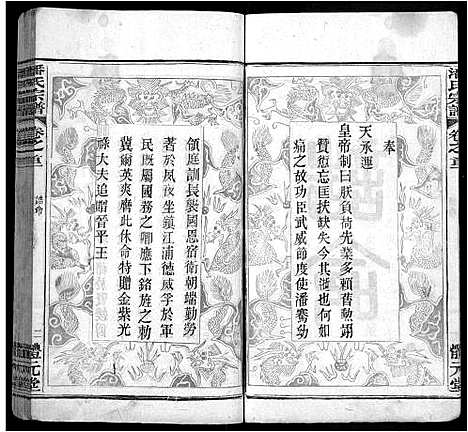 奉
天承運
皇帝制曰朕負荷先業多賴舊勳翊
贊愆忘匡扶缺失今其逝也何如
痛之故功臣武威節度使潘鶱幼
領庭訓長襲國恩宿衛朝端勤勞
著於夙夜坐鎮江浦德威孚於軍
民既屬國務之翺應下銘旌之勅
冀爾英爽膺此休命特贈金紫光
祿大夫追諡晉平王
潘氏宗譜
卷之首
誥勅
二
體元堂
潘氏宗譜
卷之首
體元堂